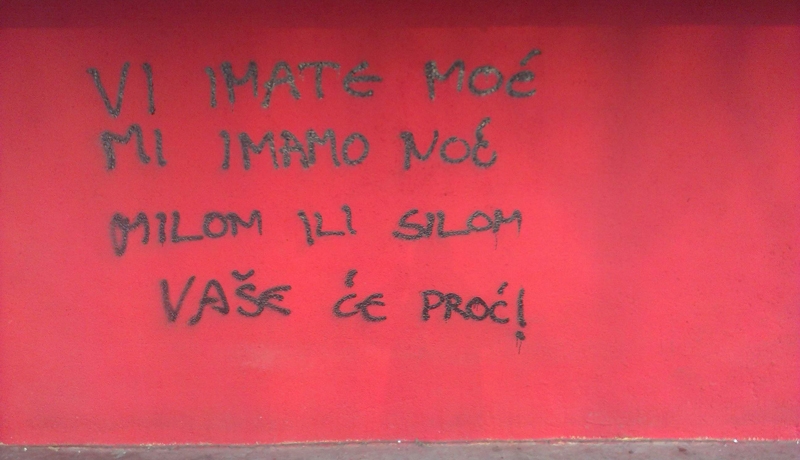 VI IMATE MOĆ
MI IMAMO NOĆ
MILOM ILI SILOM
VAŠE ĆE PROĆ!